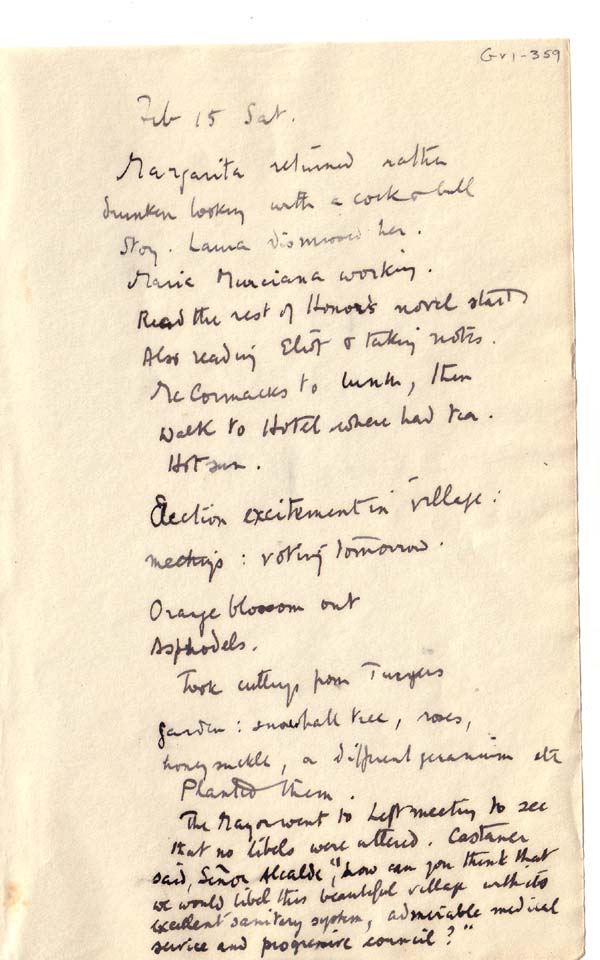 Gv1-359
Feb 15 Sat.
Margarita returned rather
drunken looking with a cock & bull
story. Laura dismissed her.
Maria Murciana working.
Read the rest of Honor's novel start
Also reading Eliot & taking notes.
McCormacks to lunch, then
walk to Hotel where had tea.
Hot sun.
Election excitement in village:
meetings: voting tomorrow.
Orange blossom out
Asphodels.
Took cuttings from
garden: snowball tree, roses,
honeysuckle, a different geranium etc
Planted them.
The Mayor went to Left meeting to see
that no libels were uttered. Castaner
said, Señor Alcalde, "how can you think that
we would libel this beautiful village with its
excellent sanitary system, admirable medical
service and progressive council?"